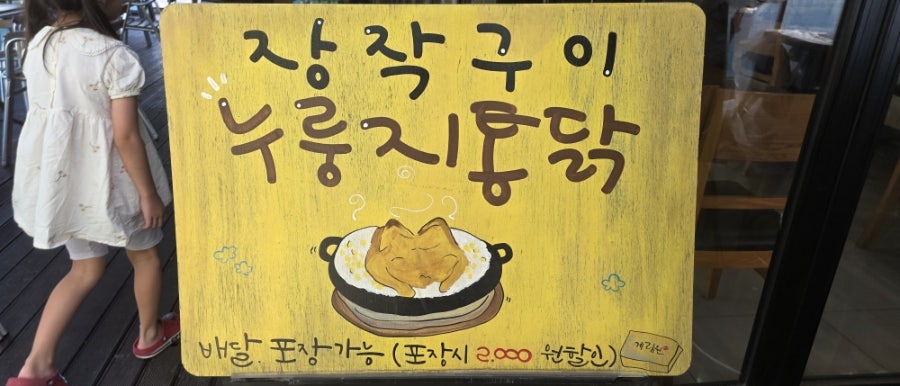 장작구이
누룽지통닭
배달.포장가능 (포장시 2.000 원할인)